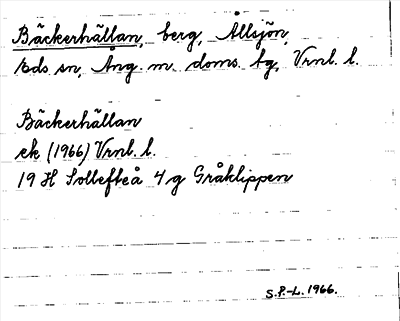 Bäckerhällan, berg, Ållsjön,
Eds sn, Ång. m. doms. tg, Vrnl. l.
Bäckerhällan
ek (1966) Vrnl. l.
19 H Sollefteå 4 g Gråklippen
S.P-L. 1966.